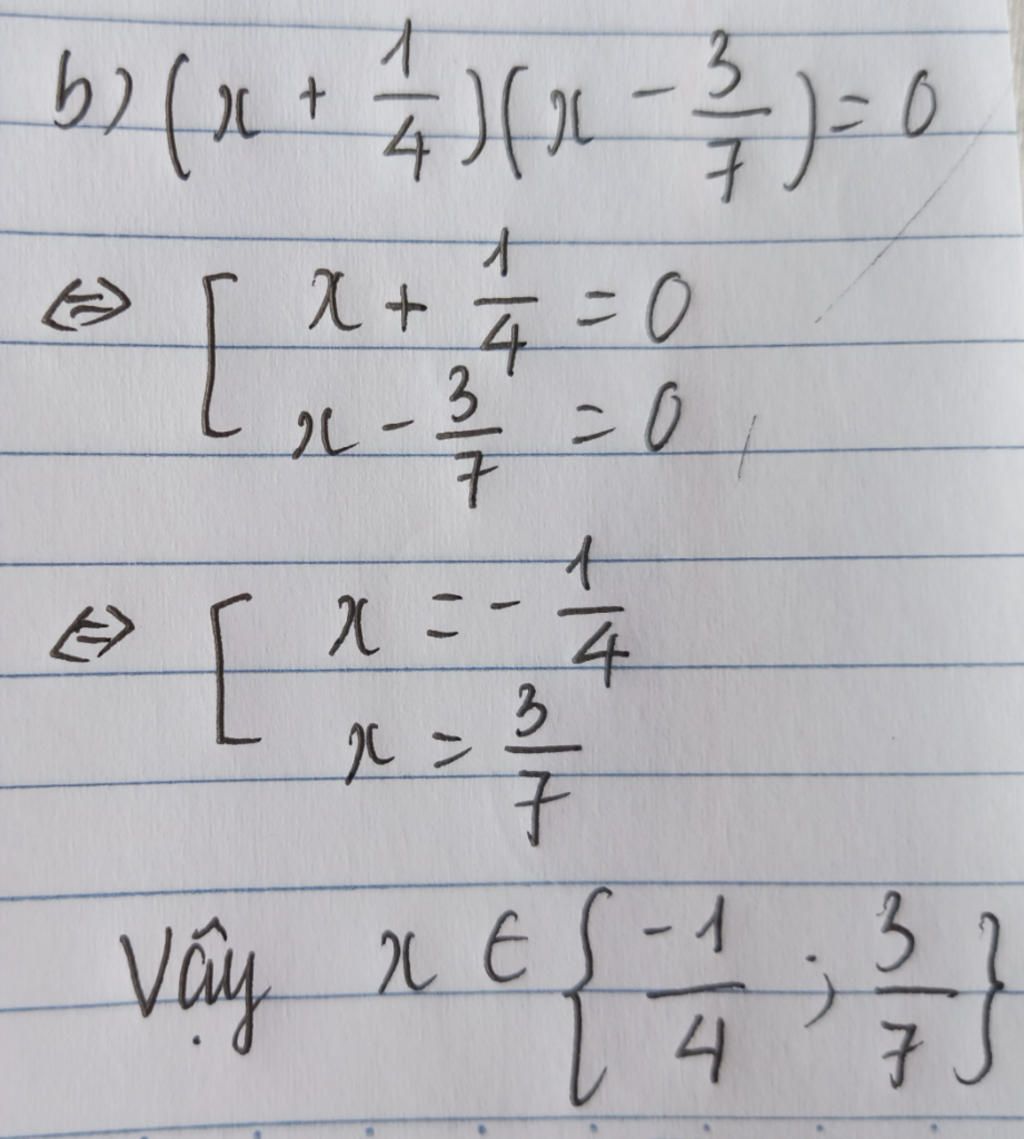 b) (x + 1/4)(x - 3/7) = 0
⇔ [ x + 1/4 = 0
x - 3/7 = 0
⇔ [ x = - 1/4
x = 3/7
Vậy x ∈ { -1/4 ; 3/7 }